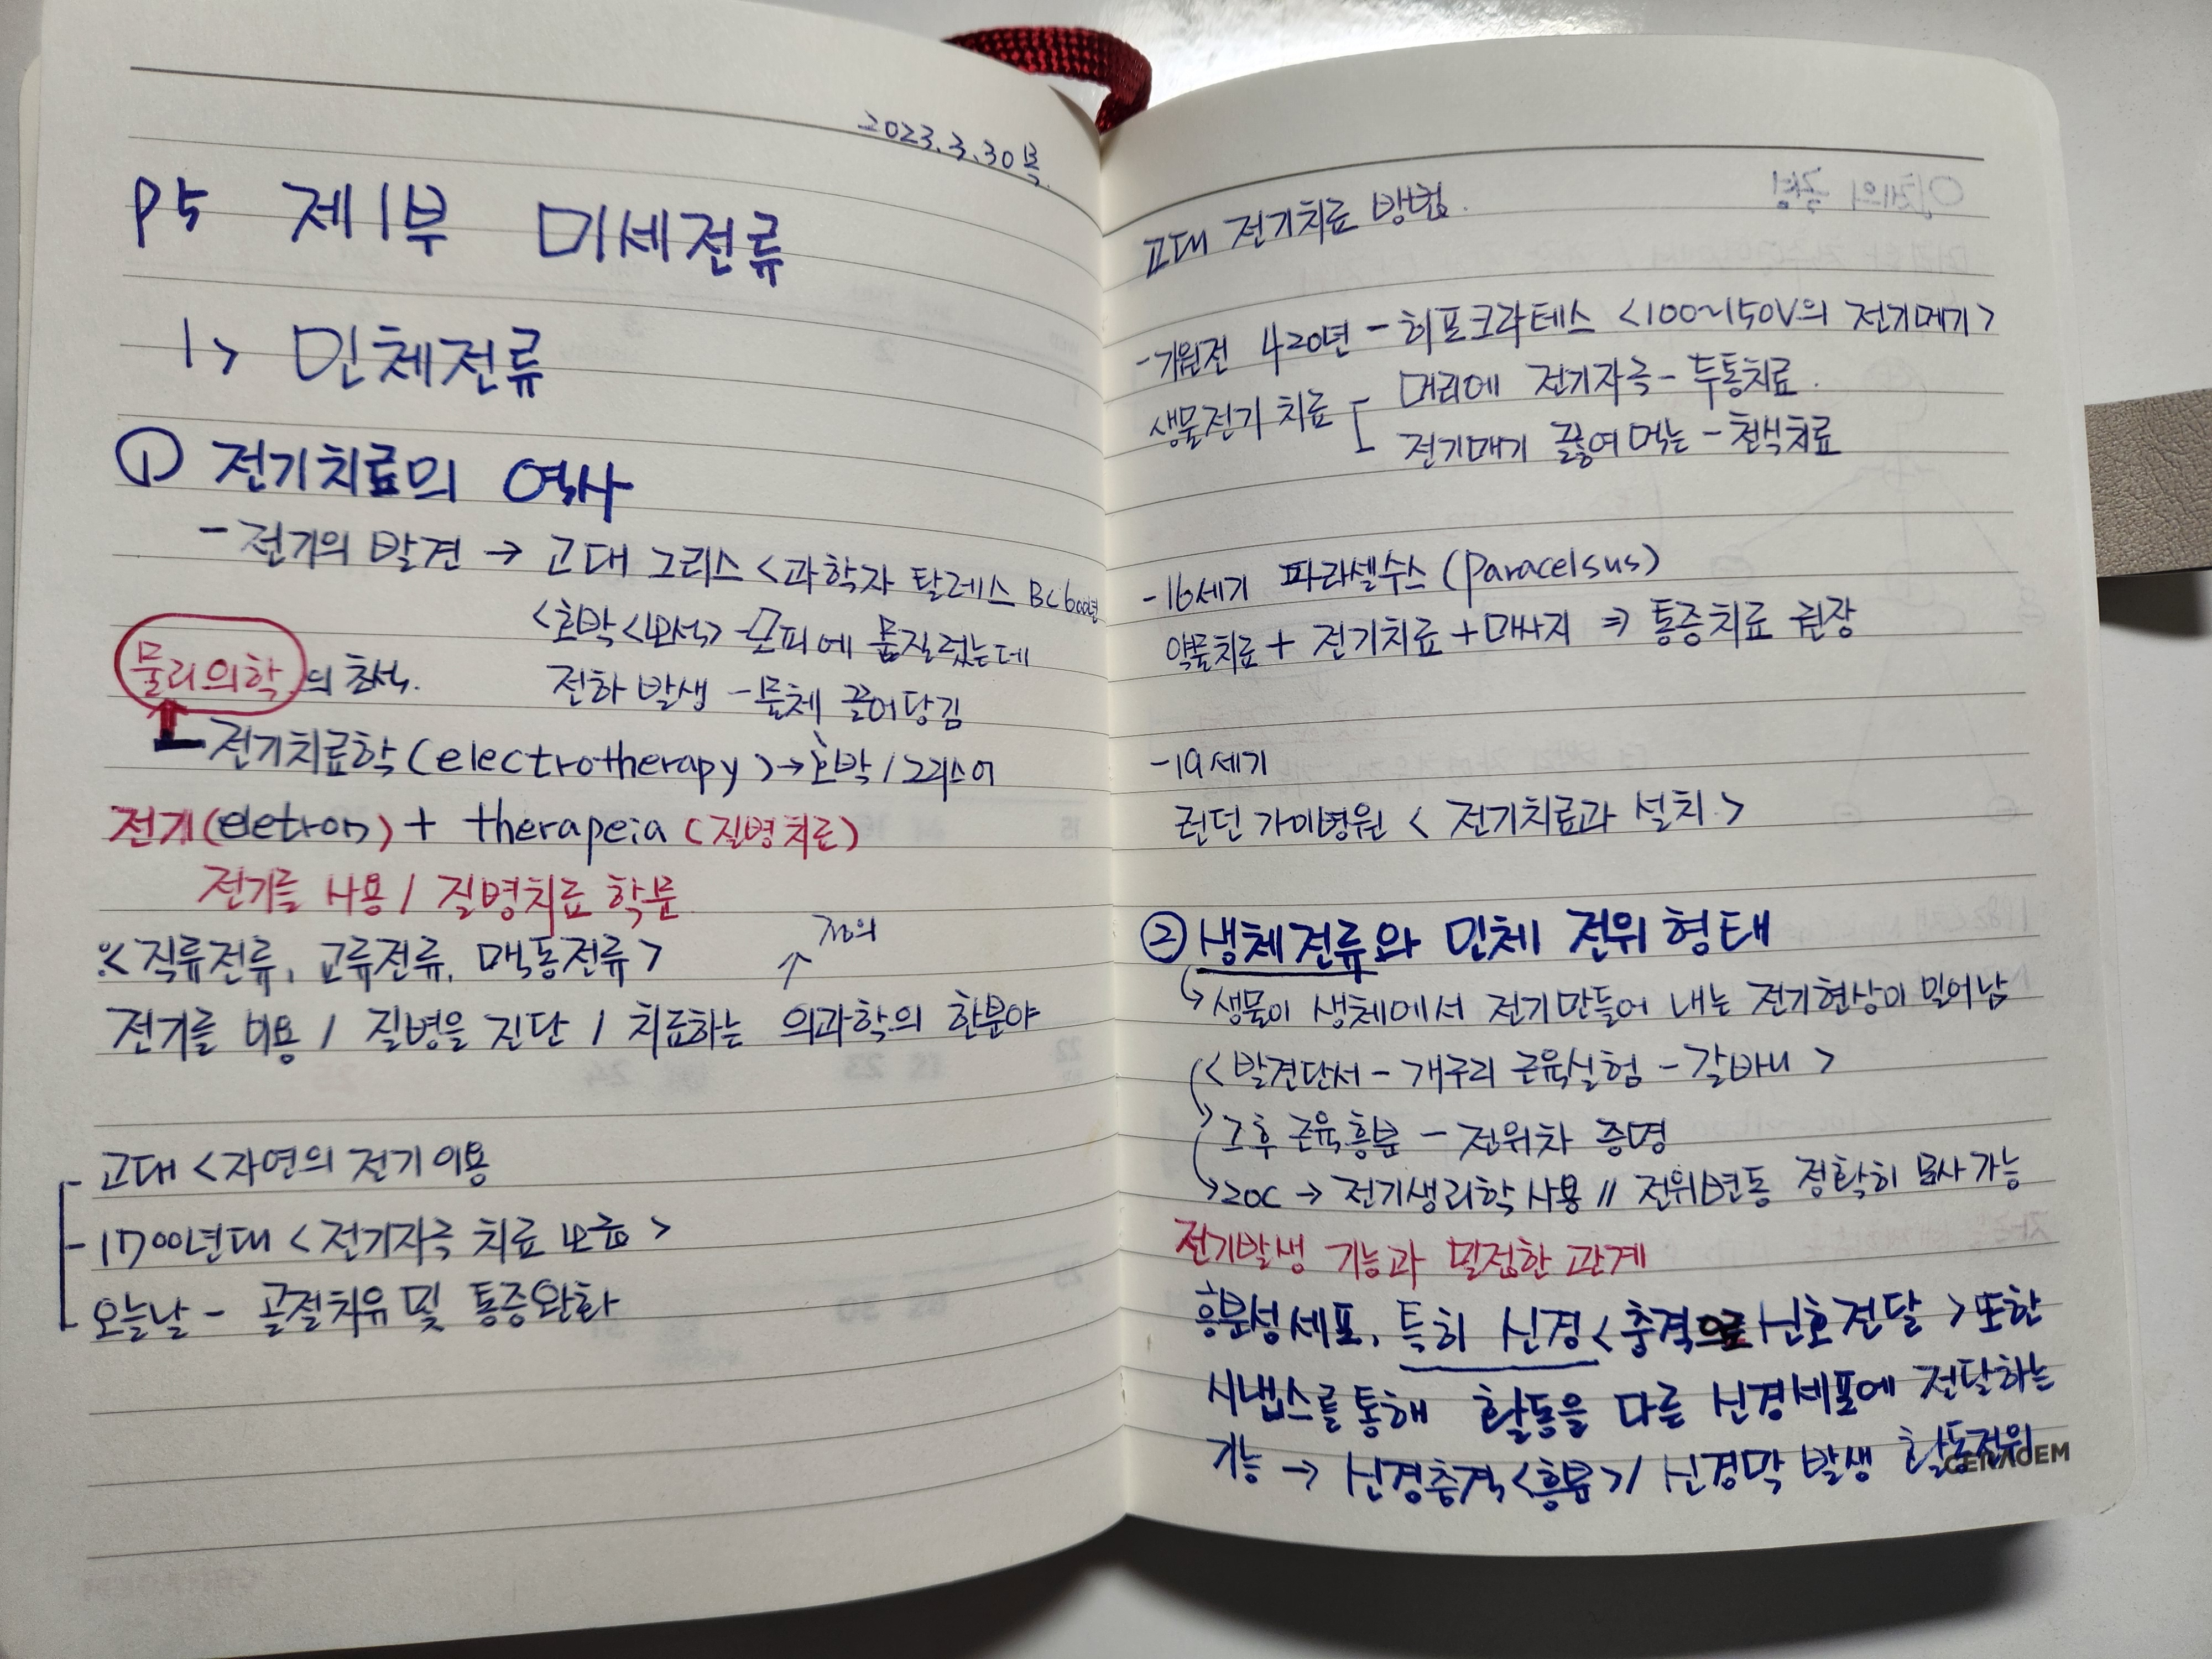 2023.3.30 목
P5 제1부 미세전류
1> 인체전류
① 전기치료의 역사
- 전기의 발견 → 고대 그리스 <과학자 탈레스 BC600년
<호박<보석> - 모피에 문질렀는데
물리의학의 해석. 전하 발생 - 물체 끌어당김
전기치료학(electrotherapy) → 호박/그리스어
전기(eletron) + therapeia (질병치료)
전기를 사용 / 질병치료 학문
정의
※<직류전류, 교류전류, 맥동전류>
전기를 이용 / 질병을 진단 / 치료하는 의과학의 한분야
고대 <자연의 전기 이용
- 1700년대 <전기자극 치료 보급>
오늘날 - 골절치유 및 통증완화
고대 전기치료 방법.
- 기원전 420년 - 히포크라테스 <100~150V의 전기메기>
생물전기 치료 [ 머리에 전기자극 - 두통치료.
전기메기 끓여 먹는 - 천식치료
- 16세기 파라셀수스 (Paracelsus)
약물치료 + 전기치료 + 마사지 ⇒ 통증치료 권장
- 19세기
런던 가이병원 < 전기치료과 설치 >
② 생체전류와 인체 전위 형태
↳ 생물이 생체에서 전기만들어 내는 전기현상이 일어남
<발견단서 - 개구리 근육실험 - 갈바니 >
그후 근육흥분 - 전위차 증명
20C → 전기생리학 사용 // 전위변동 정확히 묘사가능
전기발생 기능과 밀접한 관계
흥분성세포, 특히 신경<충격으로 신호전달> 또한
시냅스를 통해 활동을 다른 신경세포에 전달하는
기능 → 신경충격<흥분>/ 신경막 발생 활동전위
GENADEM